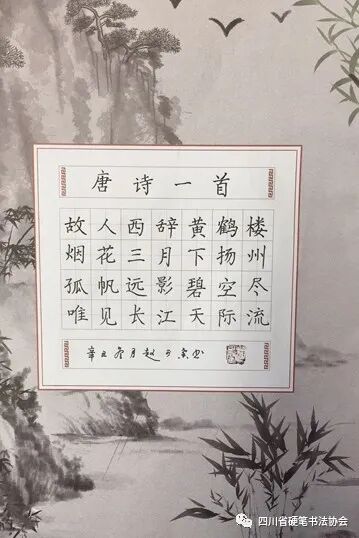 唐诗一首
故人西辞黄鹤楼
烟花三月下扬州
孤帆远影碧空尽
唯见长江天际流
辛丑冬月赵
四川省硬笔书法协会